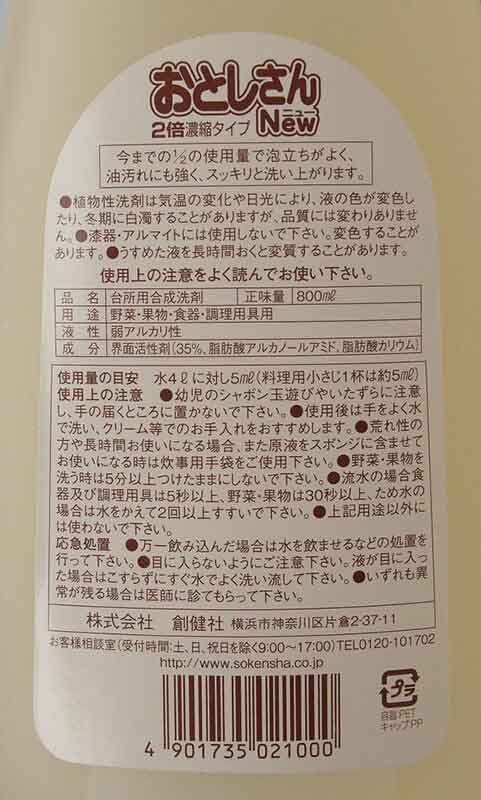 おとしさん
ニュー
2倍濃縮タイプ New
今までの½の使用量で泡立ちがよく、
油汚れにも強く、スッキリと洗い上がります。
●植物性洗剤は気温の変化や日光により、液の色が変色し
たり、冬期に白濁することがありますが、品質には変わりありませ
ん。●漆器・アルマイトには使用しないで下さい。変色することが
あります。●うすめた液を長時間おくと変質することがあります。
使用上の注意をよく読んでお使い下さい。
品 名 台所用合成洗剤 正味量 800mℓ
用 途 野菜・果物・食器・調理用具用
液 性 弱アルカリ性
成 分 界面活性剤(35%、脂肪酸アルカノールアミド、脂肪酸カリウム)
使用量の目安 水4ℓに対し5mℓ(料理用小さじ1杯は約5mℓ)
使用上の注意 ●幼児のシャボン玉遊びやいたずらに注意
し、手の届くところに置かないで下さい。●使用後は手をよく水
で洗い、クリーム等でのお手入れをおすすめします。●荒れ性の
方や長時間お使いになる場合、また原液をスポンジに含ませて
お使いになる時は炊事用手袋をご使用下さい。●野菜・果物を
洗う時は5分以上つけたままにしないで下さい。●流水の場合食
器及び調理用具は5秒以上、野菜・果物は30秒以上、ため水の
場合は水をかえて2回以上すすいで下さい。●上記用途以外に
は使わないで下さい。
応急処置 ●万一飲み込んだ場合は水を飲ませるなどの処置を
行って下さい。●目に入らないようにご注意下さい。液が目に入っ
た場合はこすらずにすぐ水でよく洗い流して下さい。●いずれも異
常が残る場合は医師に診てもらって下さい。
株式会社 創健社 横浜市神奈川区片倉2-37-11
お客様相談室(受付時間:土、日、祝日を除く9:00〜17:00)TEL0120-101702
http://www.sokensha.co.jp
プラ
容器:PET
キャップ:PP
4 901735 021000